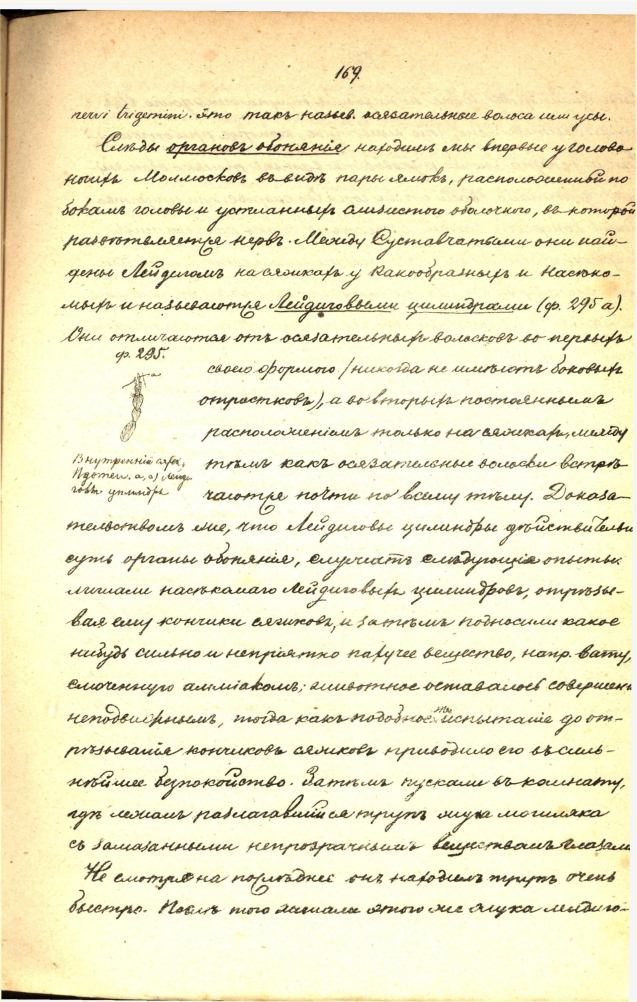 169.
nervi trigemini. Это такъ назыв. осязательные волоса или усы.
Слѣды органовъ обонянія находимъ мы впервые у голово
ногихъ Моллюсковъ въ видѣ пары ямокъ, расположенныхъ по
бокамъ головы и устланныхъ слизистого оболочкого, въ которой
развѣтвляется нервъ. Между Суставчатыми они най-
дены Лейдигомъ на сяжкахъ у Ракообразныхъ и Насѣко-
мыхъ и называются Лейдиговыми цилиндрами (ф. 295 а).
Они отличаются отъ осязательныхъ волосковъ во первыхъ
ф. 295.
а
своего формого (никогда не имѣютъ боковыхъ
отростковъ), а во вторыхъ постояннымъ
расположеніемъ только на сяжкахъ, между
Внутренній
а, а) Лейди
говъ цилиндръ
тѣмъ какъ осязательные волоски встрѣ
чаются почти по всему тѣлу. Доказа-
тельствомъ же, что Лейдиговы цилиндры дѣйствительн
суть органы обонянія, служатъ слѣдующіе опыты:
лишали насѣкомаго Лейдиговыхъ цилиндровъ, отрѣзы-
вая ему кончики сяжковъ, и затѣмъ подносили какое
нибудь сильно и непріятно пахучее вещество, напр. вату,
смоченную амміакомъ; животное оставалось совершен
неподвижнымъ, тогда какъ подобное же испытаніе до от-
рѣзыванія кончиковъ сяжковъ приводило его въ силь-
нѣйшее безпокойство. Затѣмъ пускали въ комнату,
гдѣ лежалъ разлагавшійся трупъ жука могиляка
съ замазанными непрозрачнымъ веществомъ глазами
Не смотря на послѣднее онъ находилъ трупъ очень
быстро. Послѣ того лишали этого же жука лейдиго-